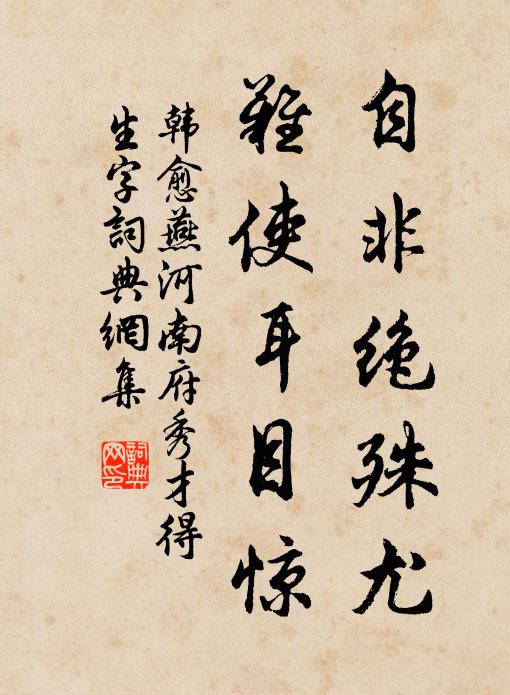 自非绝殊尤
难使耳目惊
韩愈燕河南府秀才得
生字詞典網集
詞典
网印